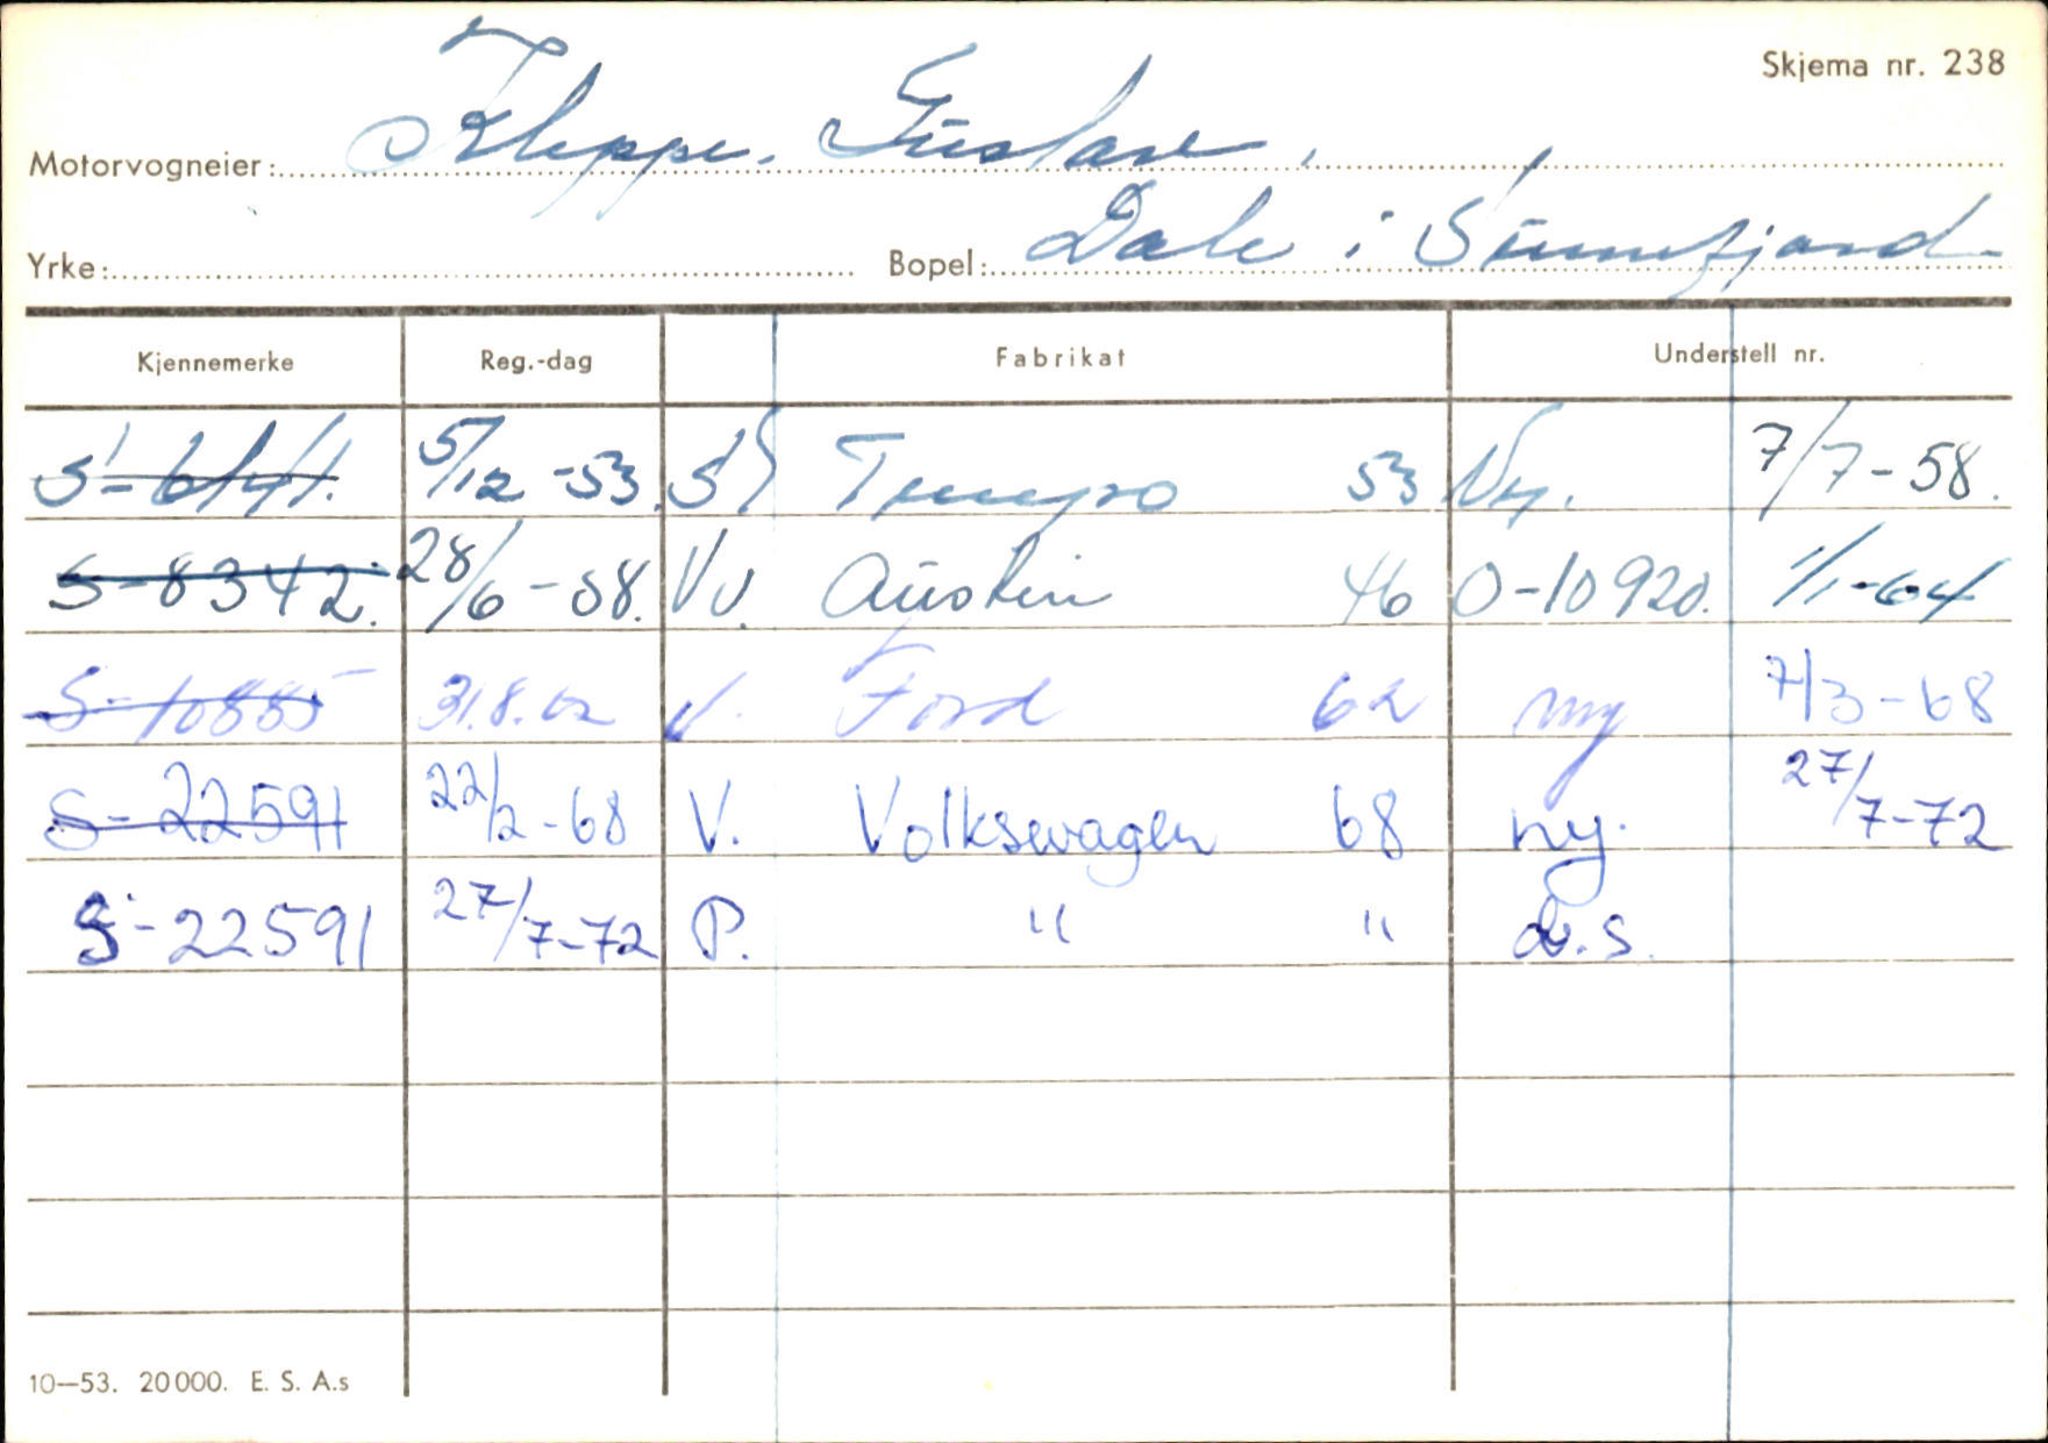 Skjema nr. 238
Motorvogneier: Kleppe, Gustav.
Yrke: Bopel: Dale i Sunnfjord
Kjennemerke Reg.-dag Fabrikat Understell nr.
5/12 -53. Tempo 53 Ny. 7/7-58.
S-8342. 28/6-58. Vv. Austin 46 O-10920. 1/1-64
S-10885 31.8.62 V. Ford 62 ny 7/3-68
S-22591 22/2-68 V. Volkswagen 68 ny. 27/7-72
S-22591 27/7-72 P. " " d.s.
10—53. 20000. E. S. A.s